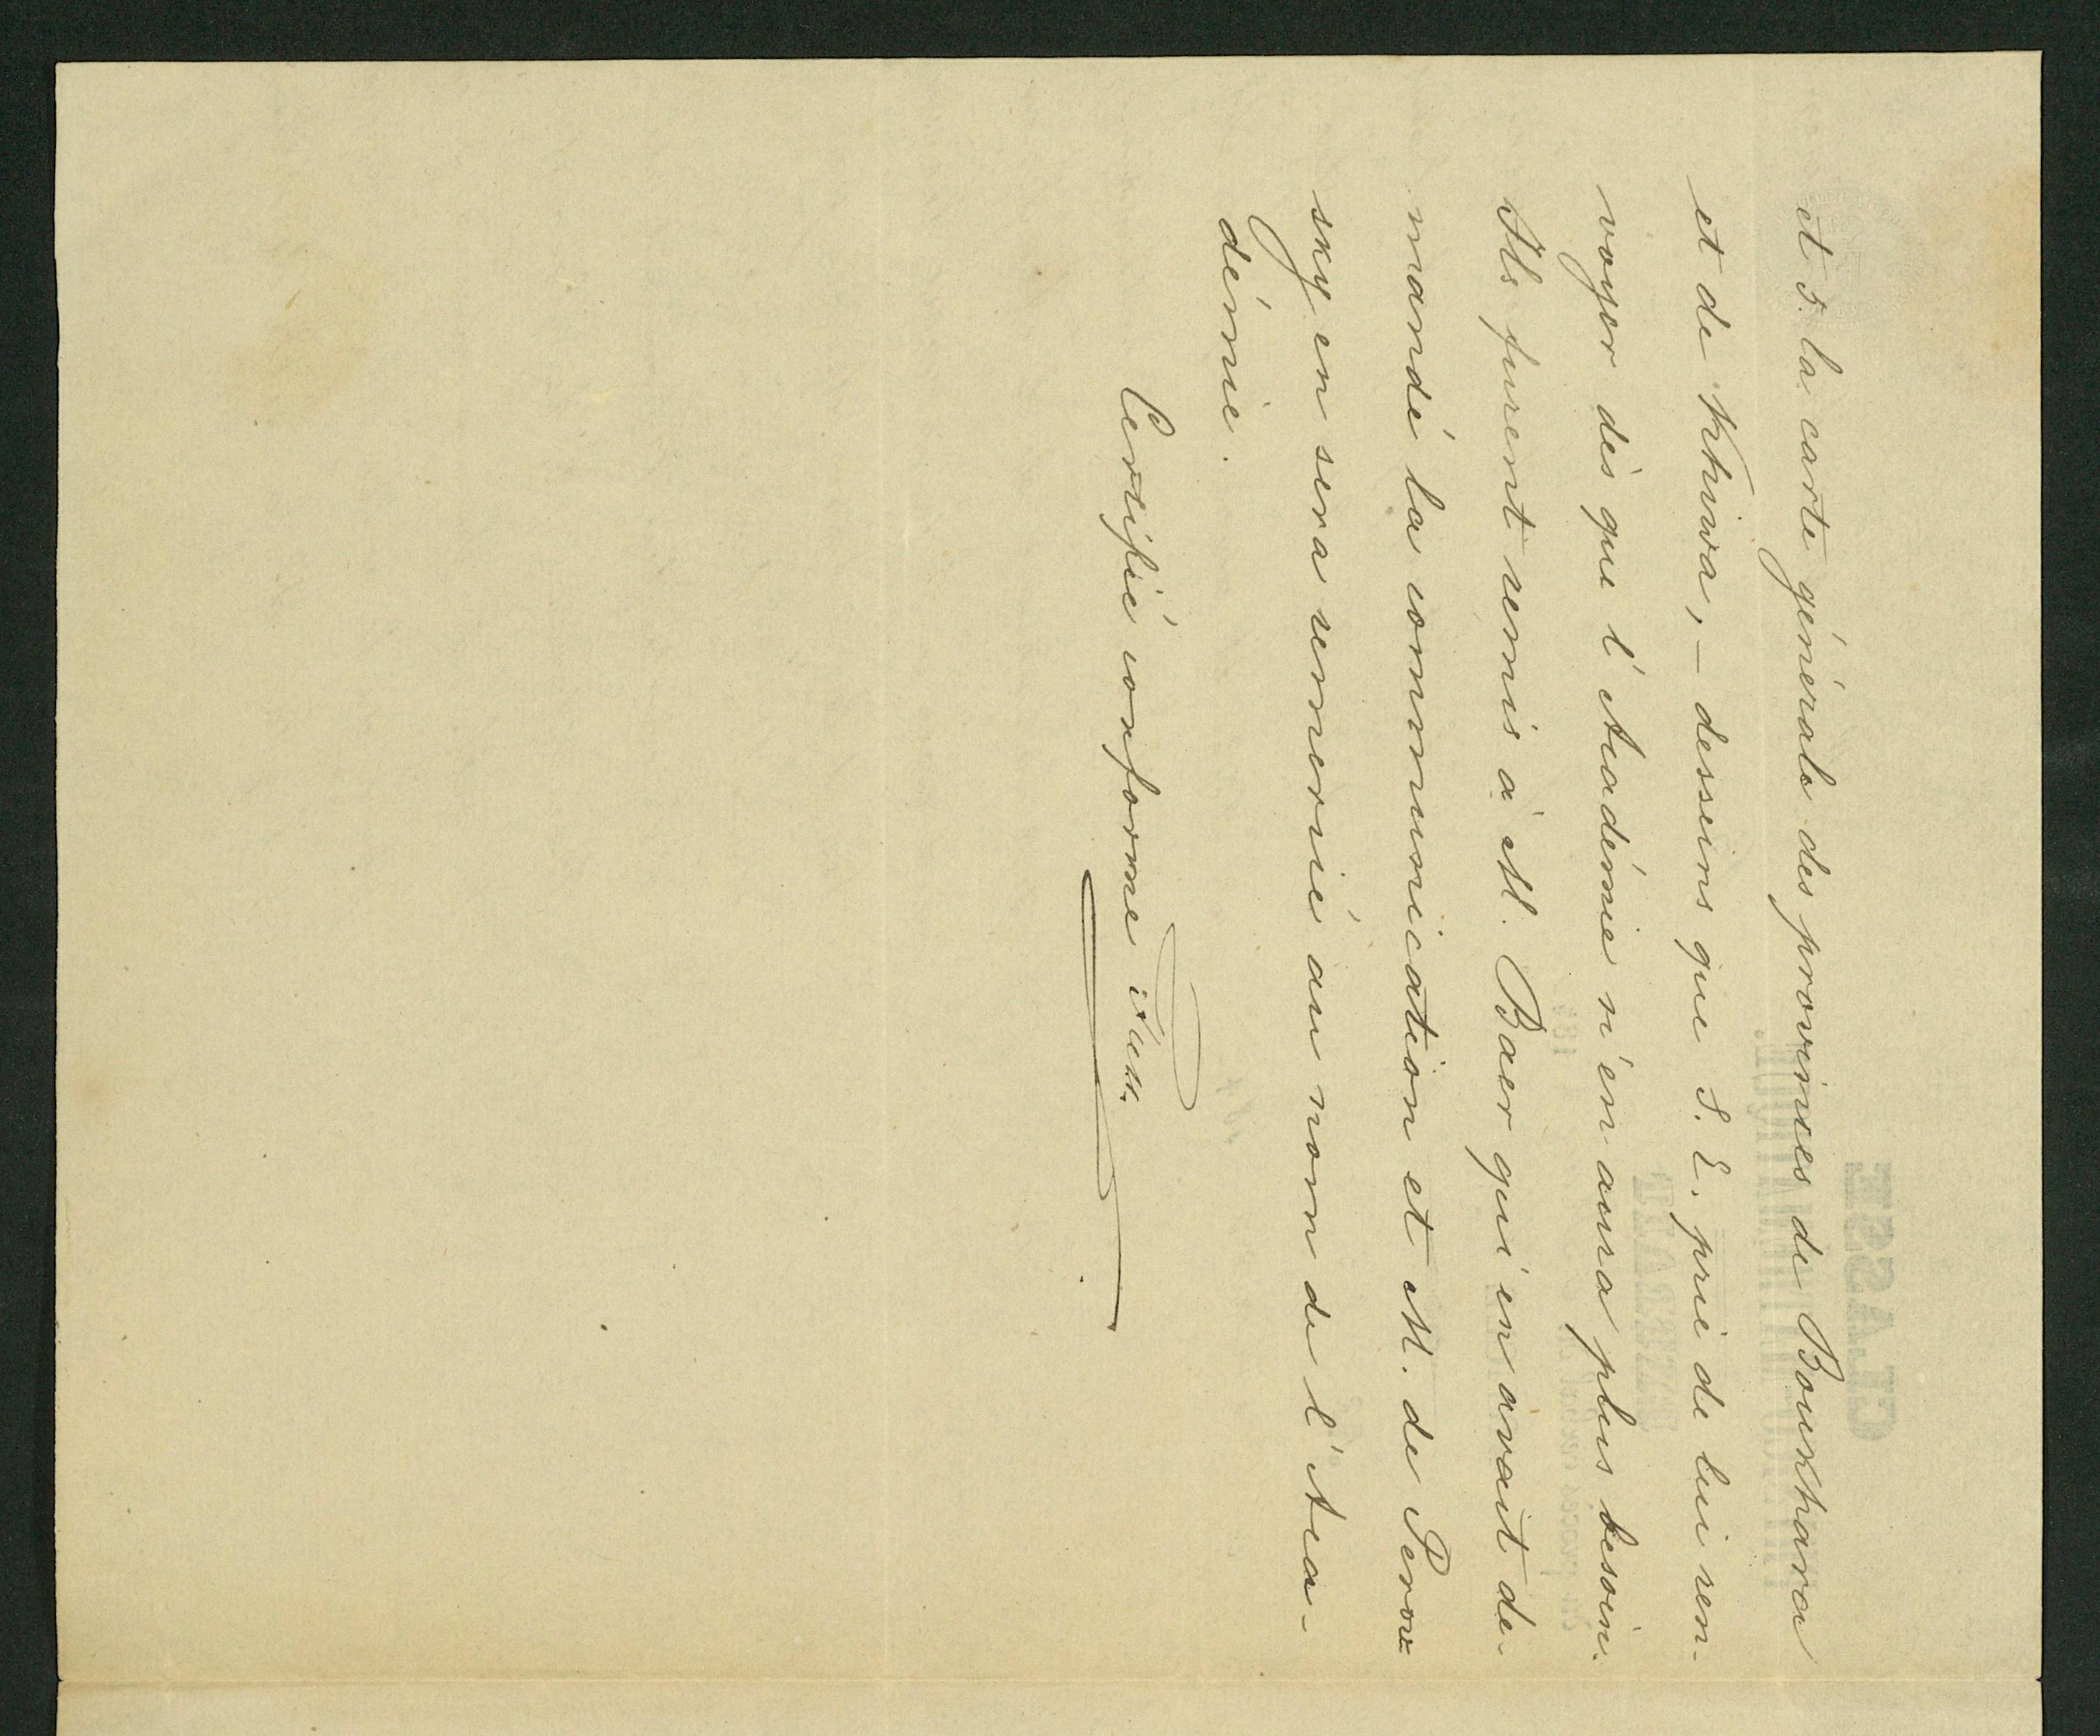 et 5. la carte générale des provinces de Boukhara
et de Khiva, – dessins que S. E. prie de lui ren-
voyer dès que l'Académie n'en aura plus besoin.
Ils furent remis à M. Baer qui en avait de-
mandé la communication et M. de Perow-
sky en sera remercié au nom de l'Aca-
démie.
Certifié conforme Fuss.